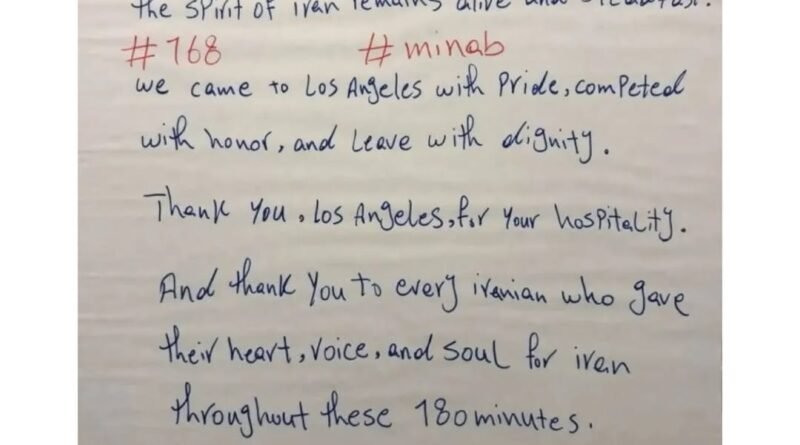 the spirit of iran remains alive and steadfast.
#168 #minab
we came to Los Angeles with Pride, competed
with honor, and Leave with dignity.
Thank you, Los Angeles, for your hospitality.
And thank you to every iranian who gave
their heart, voice, and soul for iran
throughout these 180 minutes.